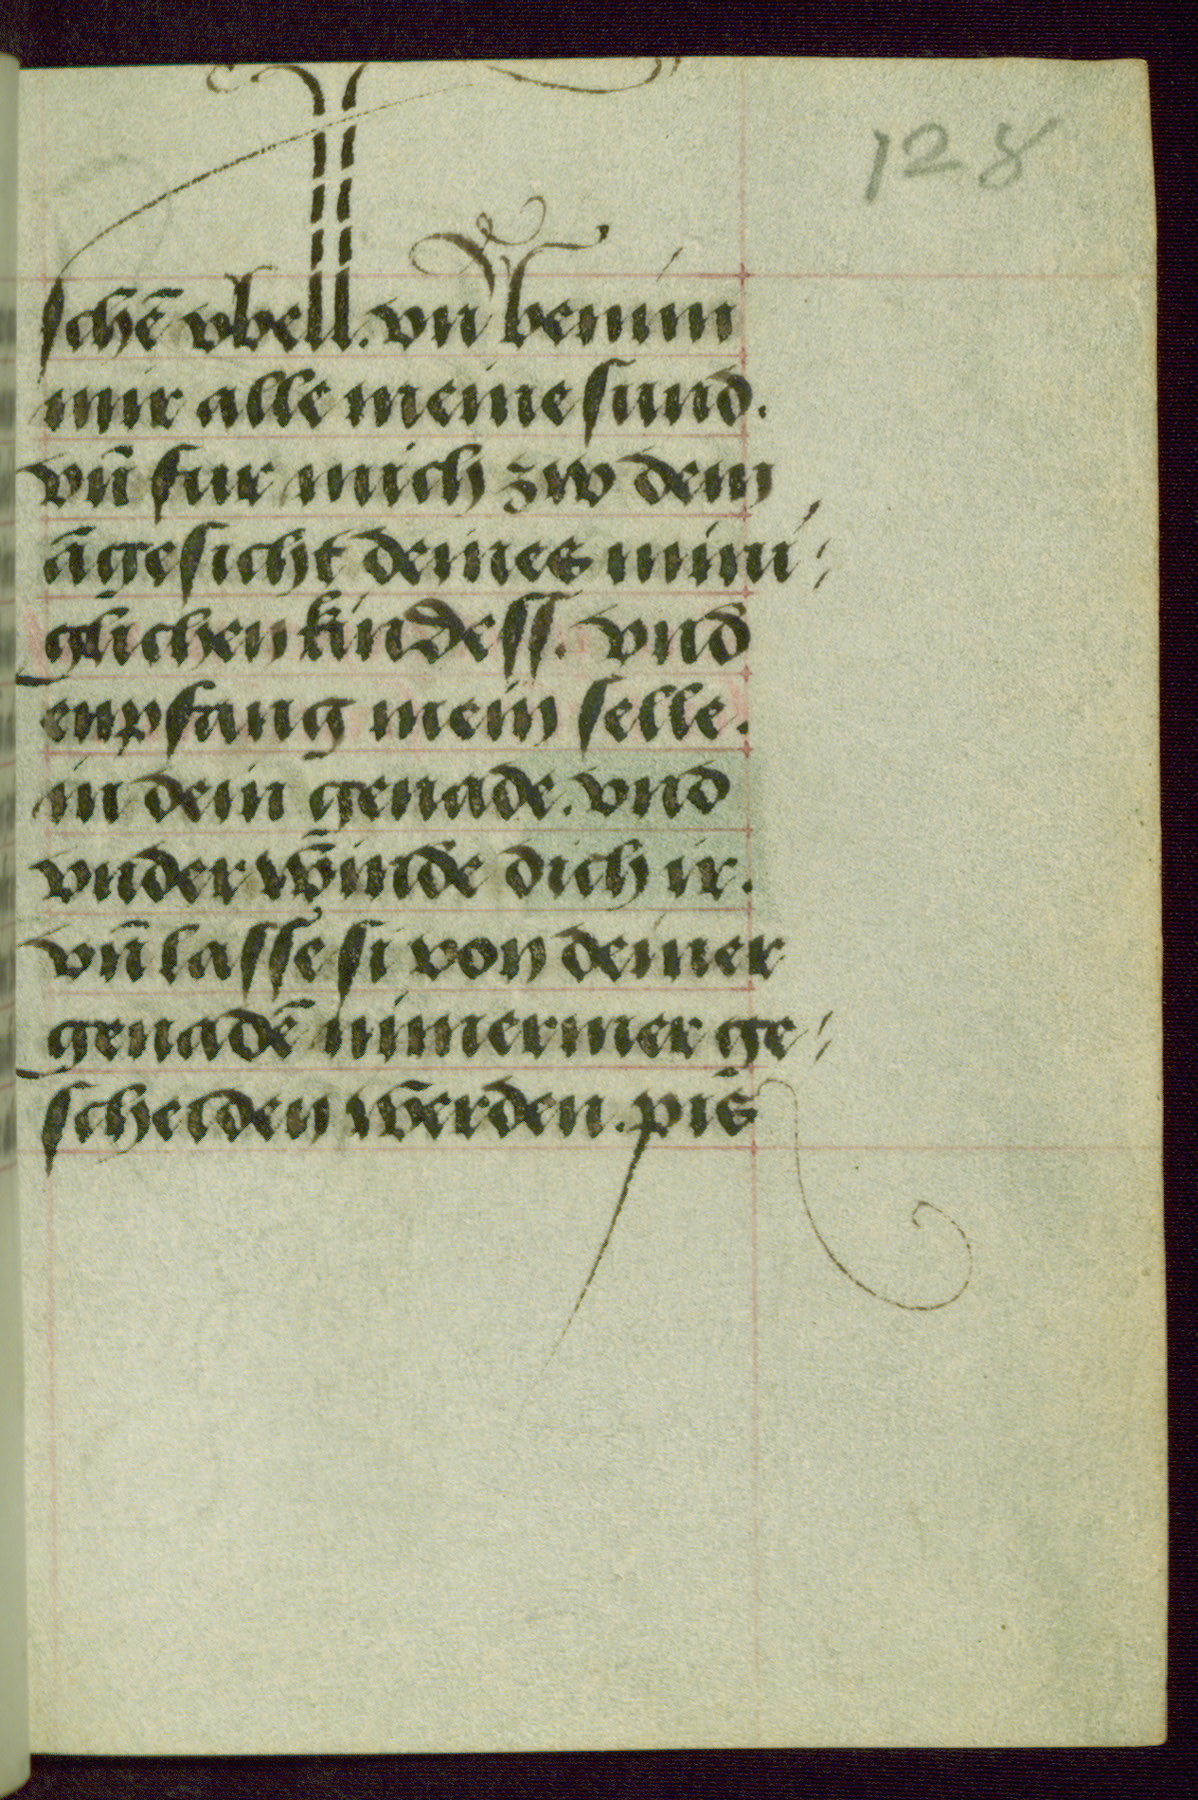 128
schē vbell. vn̄ benim
mir alle meine sund.
vn̄ fur mich zw dem
āgesicht deines mini⸗
glichen kindess. vnd
enpfang mein selle.
in dein genade. vnd
vnderwinde dich ir.
vn̄ lasse si von deiner
genadē nimermer ge⸗
scheiden werden. pis